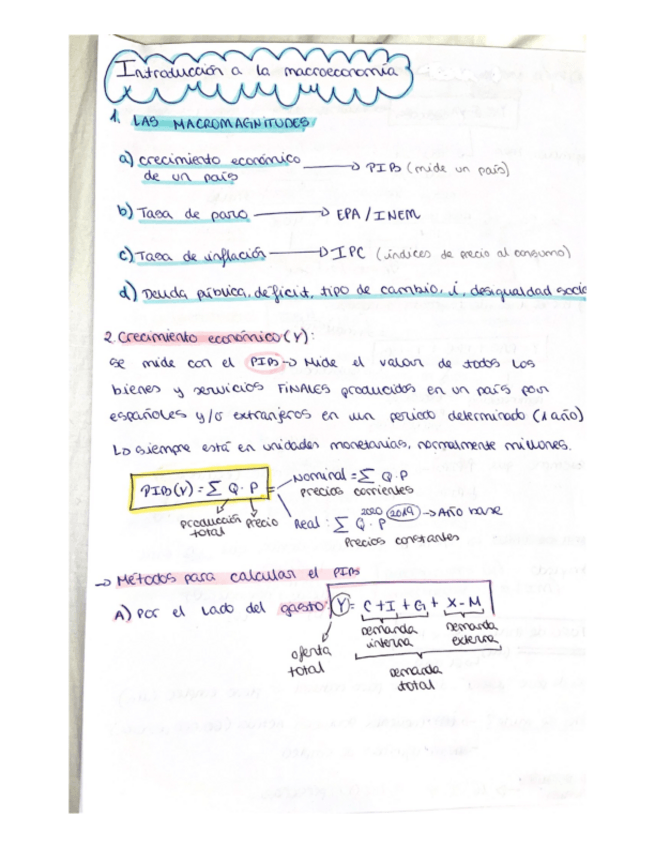 Introducción a la macroeconomía
1. LAS MACROMAGNITUDES
a) crecimiento económico → PIB (mide un país)
de un país
b) Tasa de paro → EPA / INEM
c) Tasa de inflación → IPC (índices de precio al consumo)
d) Deuda pública, déficit, tipo de cambio, i, desigualdad socia
2. Crecimiento económico (Y):
se mide con el PIB → Mide el valor de todos los
bienes y servicios FINALES producidos en un país por
españoles y/o extranjeros en un periodo determinado (1 año)
↳ siempre está en unidades monetarias, normalmente millones.
PIB(Y) = Σ Q · P
Nominal = Σ Q · P
precios corrientes
producción total
Precio
Real : Σ Q 2020 · P 2019 → Año base
Precios constantes
→ Métodos para calcular el PIB
A) Por el lado del gasto: Y = C + I + G + X - M
oferta total
Demanda interna
Demanda externa
Demanda total